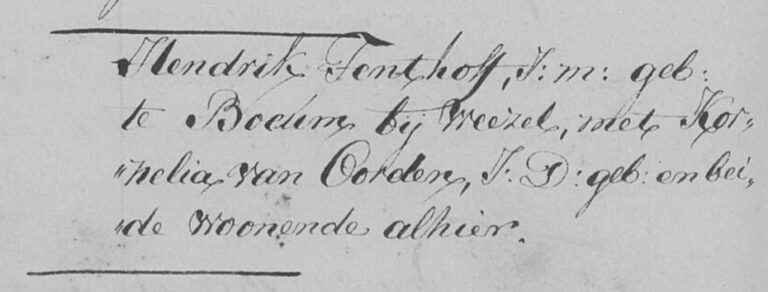 Hendrik Tenthoff, J: m: geb:
te Bocum bij Weezel, met Kor-
„nelia van Oorden, J: D: geb: en bei-
„de woonende alhier.